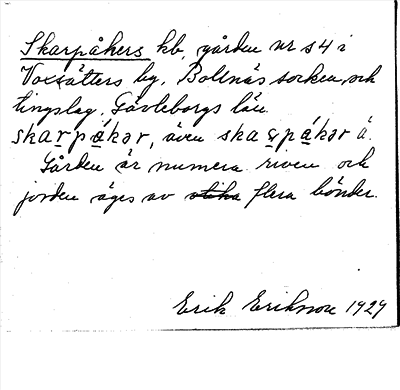 Skarpåkers kb, gården nr 54 i
Voxsätters by, Bollnäs socken och
tingslag, Gävleborgs län.
skarpåkər, även skaṣpåkər å.
Gården är numera riven och
jorden äges av olika flera bönder.
Erik Eriksson 1929